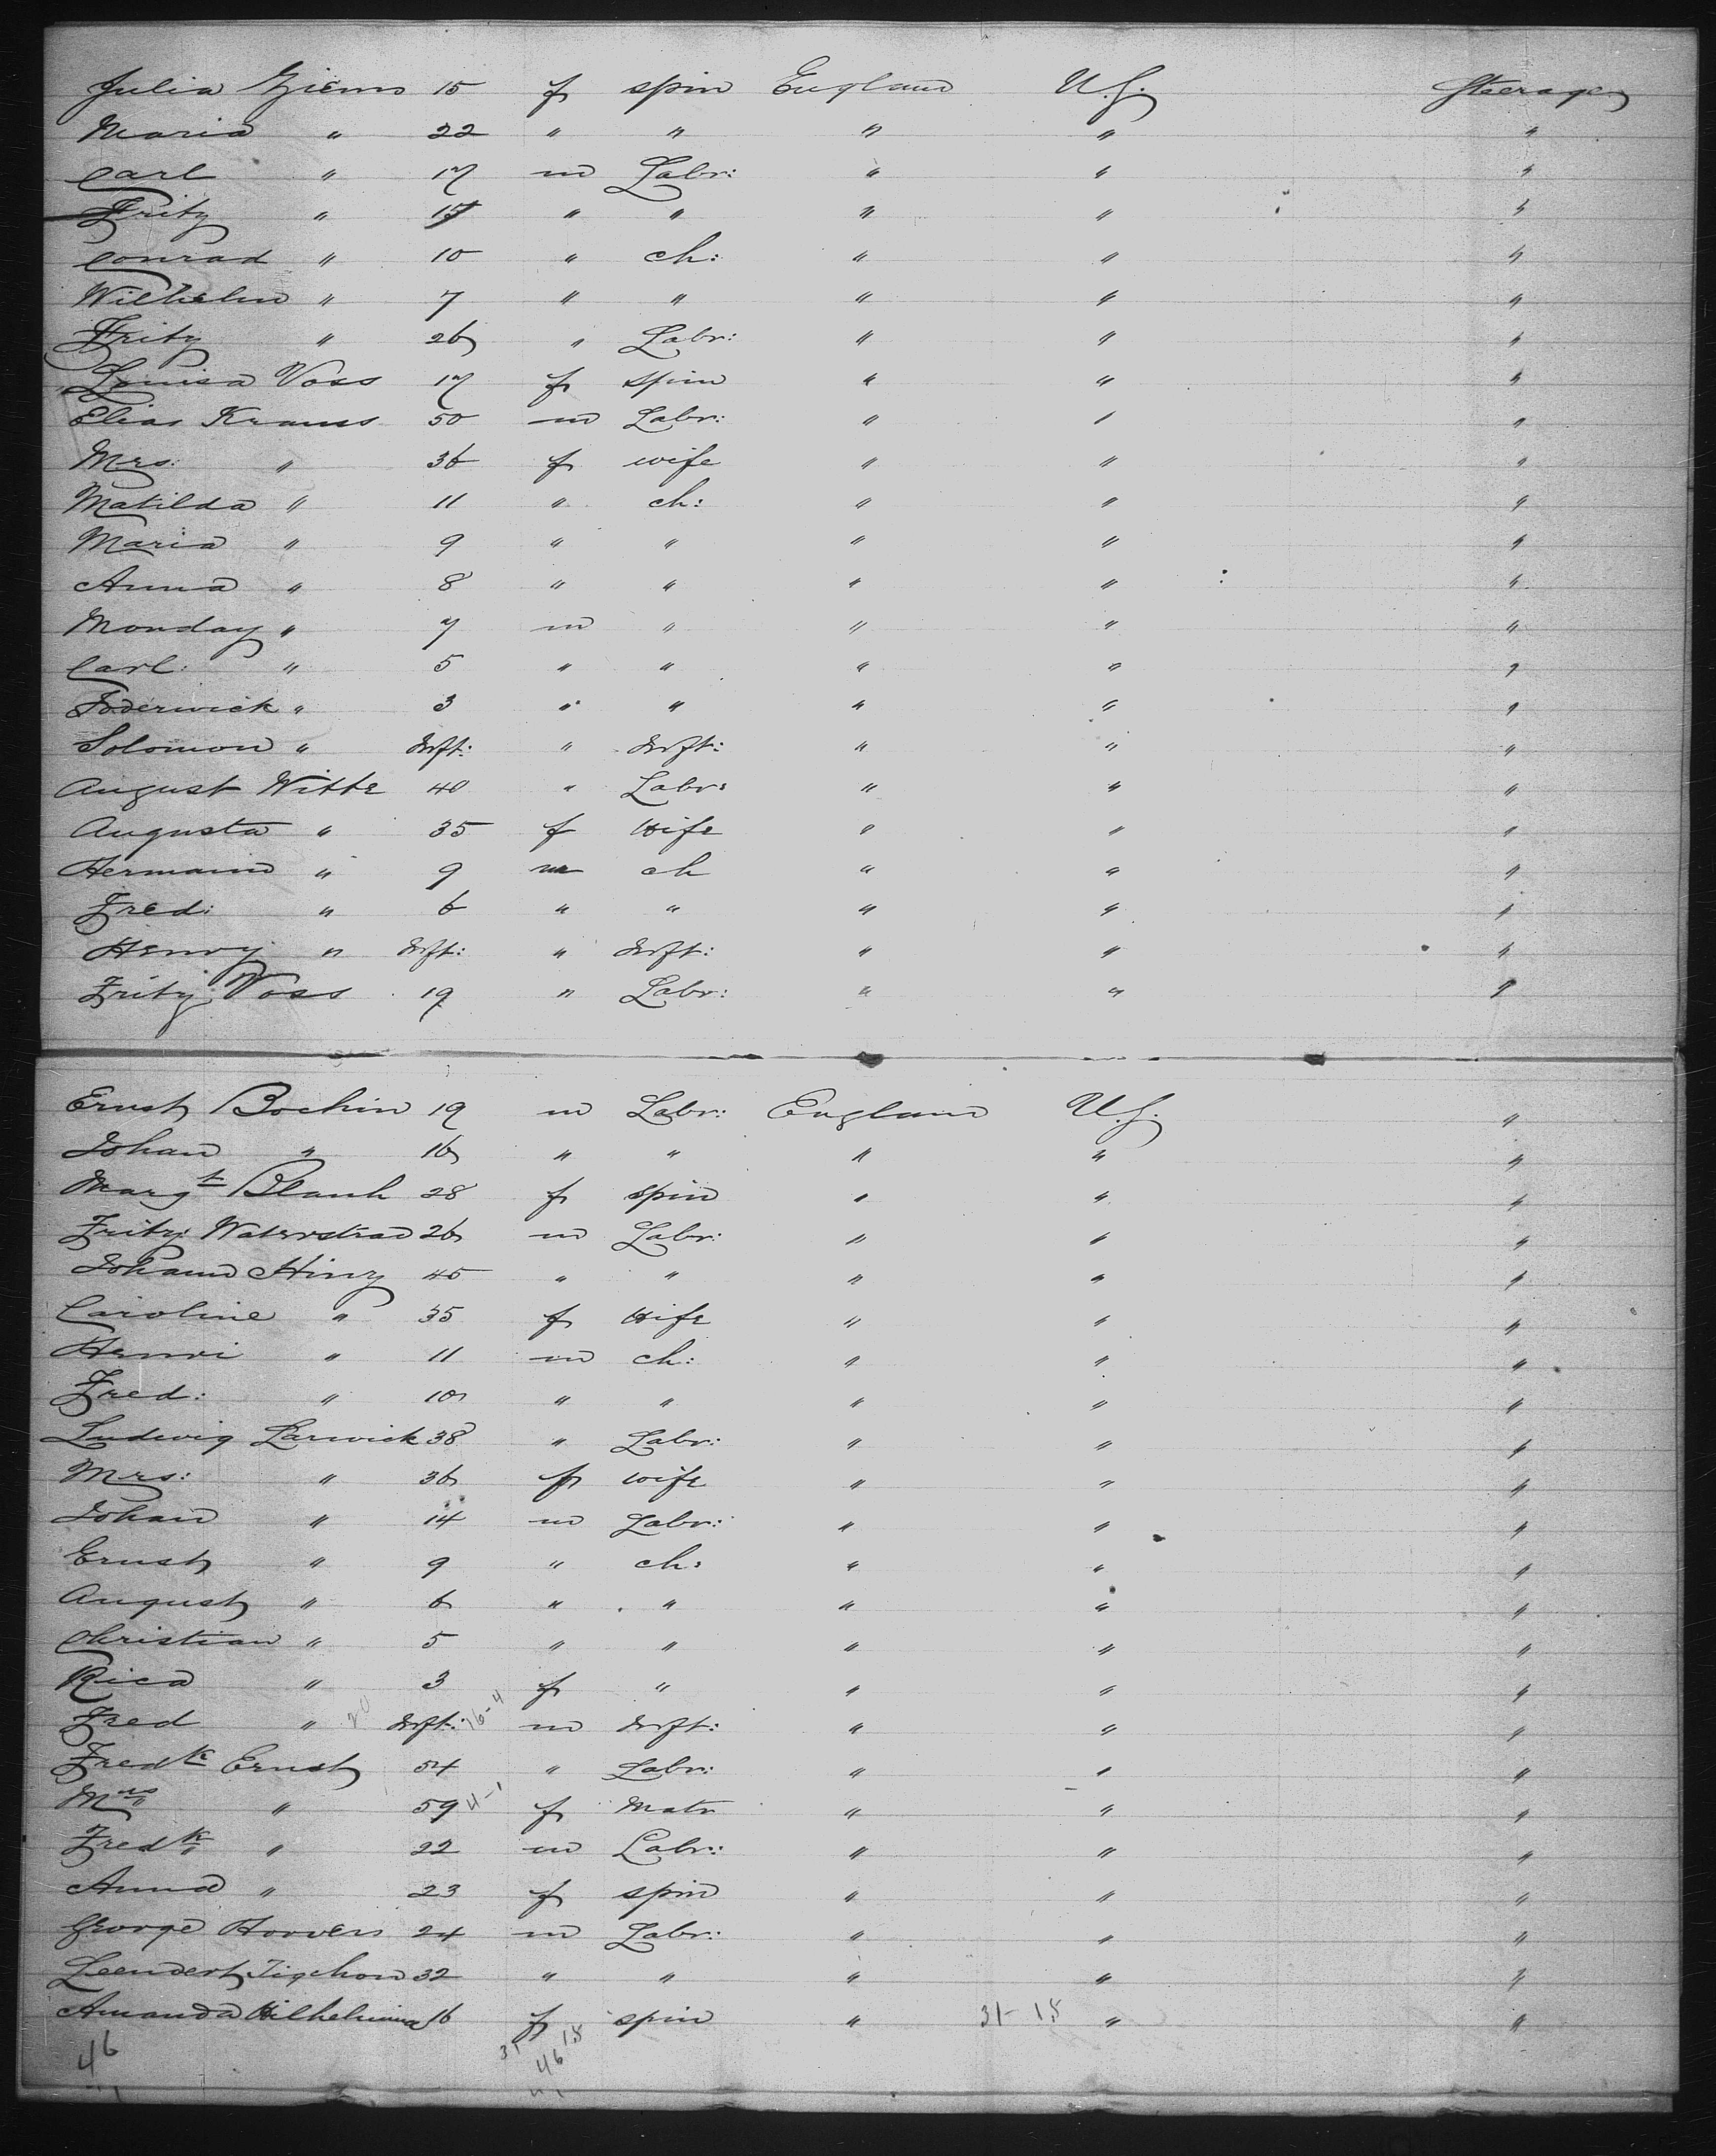 Julia Ziems 15 f spin England U.S. Steerage
Maria " 22 " " " " "
Carl " 17 m Labr: " " "
Fritz " 17 " " " " "
Conrad " 10 " ch: " " "
Wilhelm " 7 " " " " "
Fritz " 26 " Labr: " " "
Louisa Voss 17 f spin " " "
Elias Krauss 50 m Labr: " " "
Mrs: " 36 f wife " " "
Matilda " 11 " ch: " " "
Maria " 9 " " " " "
Anna " 8 " " " " "
Monday " 7 m " " " "
Carl: " 5 " " " " "
Foderwick " 3 " " " " "
Solomon " Inft: " Inft: " " "
August Witte 40 " Labr: " " "
Augusta " 35 f Wife " " "
Hermann " 9 m ch " " "
Fred: " 6 " " " " "
Henry " Inft: " Inft: " " "
Fritz Voss 19 " Labr: " " "
Ernst Bochin 19 m Labr: England U.S. "
Johan " 16 " " " " "
Margt Blanh 28 f spin " " "
Fritz: Waterstrad 26 m Labr: " " "
Johann Hinz 45 " " " " "
Caroline " 35 f Wife " " "
Henri " 11 m ch: " " "
Fred: " 10 " " " " "
Ludewig Larwick 38 " Labr: " " "
Mrs: " 36 f wife " " "
Johan " 14 m Labr: " " "
Ernst " 9 " ch: " " "
August " 6 " " " " "
Christian " 5 " " " " "
Rica " 3 f " " " "
Fred " 20 Inft: 16-4 m Inft: " " "
Fredk Ernst 54 " Labr: " " "
Mrs " 59 4-1 f Matr " " "
Fredk " 22 m Labr: " " "
Anna " 23 f spin " " "
George Hoovers 24 m Labr: " " "
Leendert Tigchon 32 " " " " "
Amanda Wilhelmina 16 f spin " 31-15 " "
46 31 15
46